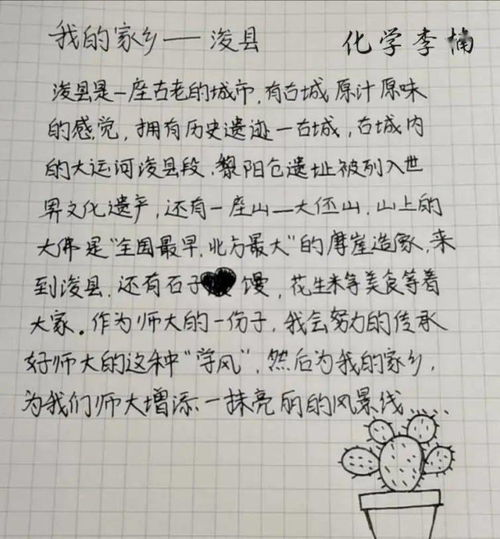 我的家乡——浚县 化学李楠
浚县是一座古老的城市,有古城原汁原味
的感觉,拥有历史遗迹一古城,古城内
的大运河浚县段,黎阳仓遗址被列入世
界文化遗产,还有一座山一大伾山,山上的
大佛是“全国最早,北方最大”的摩崖造象,来
到浚县,还有石子馍,花生米等美食等着
大家。作为师大的一份子,我会努力的传承
好师大的这种“学风”,然后为我的家乡,
为我们师大增添一抹亮丽的风景线……